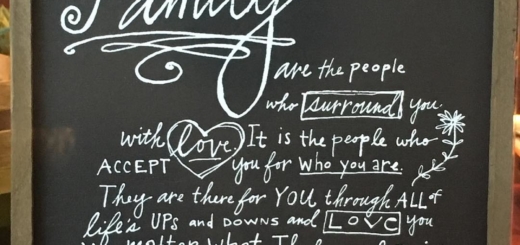 Family
are the people
who surround you
with love. It is the people who
ACCEPT you for who you are.
They are there for YOU through ALL of
life's UPS and DOWNS and LOVE you
matter what